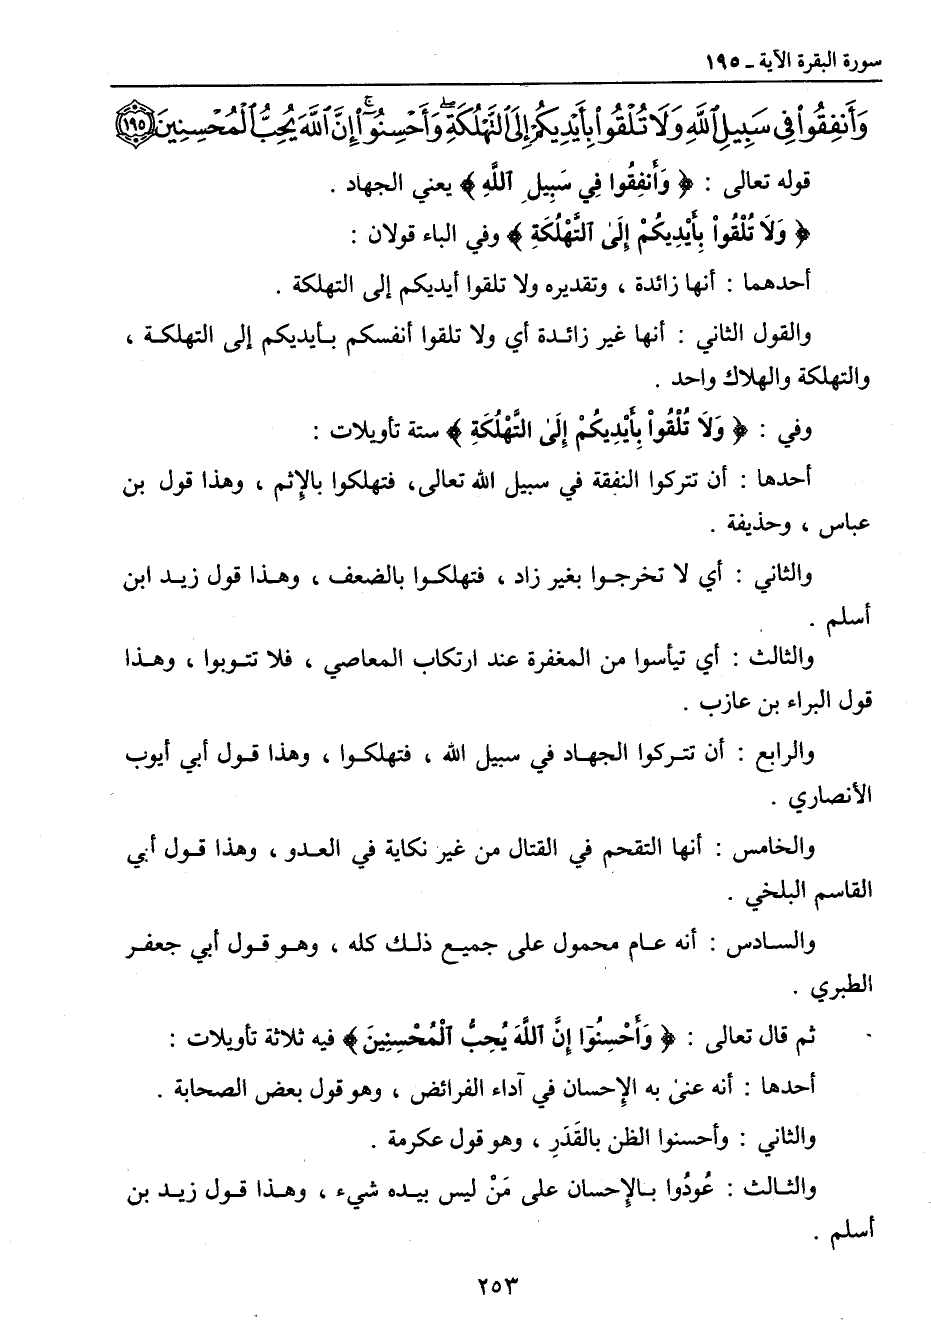 سورة البقرة الآية ـ ١٩٥
وَأَنفِقُوا۟ فِى سَبِيلِ ٱللَّهِ وَلَا تُلْقُوا۟ بِأَيْدِيكُمْ إِلَى ٱلتَّهْلُكَةِ ۛ وَأَحْسِنُوٓا۟ ۛ إِنَّ ٱللَّهَ يُحِبُّ ٱلْمُحْسِنِينَ ١٩٥
قوله تعالى : ﴿ وَأَنفِقُوا فِي سَبِيلِ ٱللَّهِ ﴾ يعني الجهاد .
﴿ وَلَا تُلْقُواْ بِأَيْدِيكُمْ إِلَىٰ ٱلتَّهْلُكَةِ ﴾ وفي الباء قولان :
أحدهما : أنها زائدة ، وتقديره ولا تلقوا أيديكم إلى التهلكة .
والقول الثاني : أنها غير زائدة أي ولا تلقوا أنفسكم بأيديكم إلى التهلكة ،
والتهلكة والهلاك واحد .
وفي : ﴿ وَلَا تُلْقُواْ بِأَيْدِيكُمْ إِلَىٰ التَّهْلُكَةِ ﴾ ستة تأويلات :
أحدها : أن تتركوا النفقة في سبيل الله تعالى، فتهلكوا بالإثم ، وهذا قول بن
عباس ، وحذيفة .
والثاني : أي لا تخرجوا بغير زاد ، فتهلكوا بالضعف ، وهذا قول زيد ابن
أسلم .
والثالث : أي تيأسوا من المغفرة عند ارتكاب المعاصي ، فلا تتوبوا ، وهذا
قول البراء بن عازب .
والرابع : أن تتركوا الجهاد في سبيل الله ، فتهلكوا ، وهذا قول أبي أيوب
الأنصاري .
والخامس : أنها التقحم في القتال من غير نكاية في العدو ، وهذا قول أبي
القاسم البلخي .
والسادس : أنه عام محمول على جميع ذلك كله ، وهو قول أبي جعفر
الطبري .
ثم قال تعالى : ﴿ وَأَحْسِنُوٓا إِنَّ ٱللَّهَ يُحِبُّ ٱلْمُحْسِنِينَ ﴾ فيه ثلاثة تأويلات :
أحدها : أنه عنىٰ به الإحسان في آداء الفرائض ، وهو قول بعض الصحابة .
والثاني : وأحسنوا الظن بالقَدَرِ ، وهو قول عكرمة .
والثالث : عُودُوا بالإحسان على مَنْ ليس بيده شيء ، وهذا قول زيد بن
أسلم .
٢٥٣